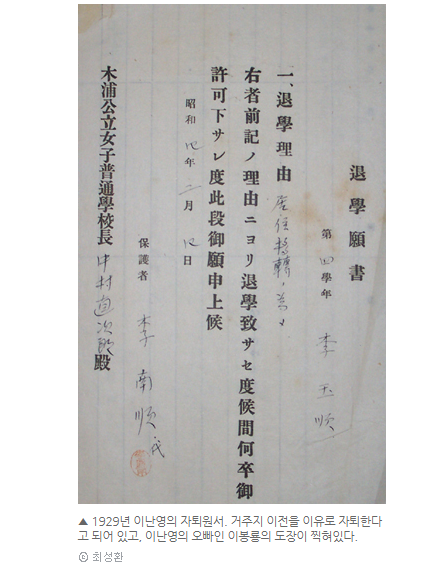 退學願書
第四學年 李玉順
一、退學理由 居住移轉ノ為メ
右者前記ノ理由ニヨリ退學致サセ度候間何卒御
許可下サレ度此段御願申上候
昭和四年二月四日
保護者 李南順
木浦公立女子普通學校長 中村直次郎殿
▲ 1929년 이난영의 자퇴원서. 거주지 이전을 이유로 자퇴한다
고 되어 있고, 이난영의 오빠인 이봉룡의 도장이 찍혀있다.
ⓒ 최성환